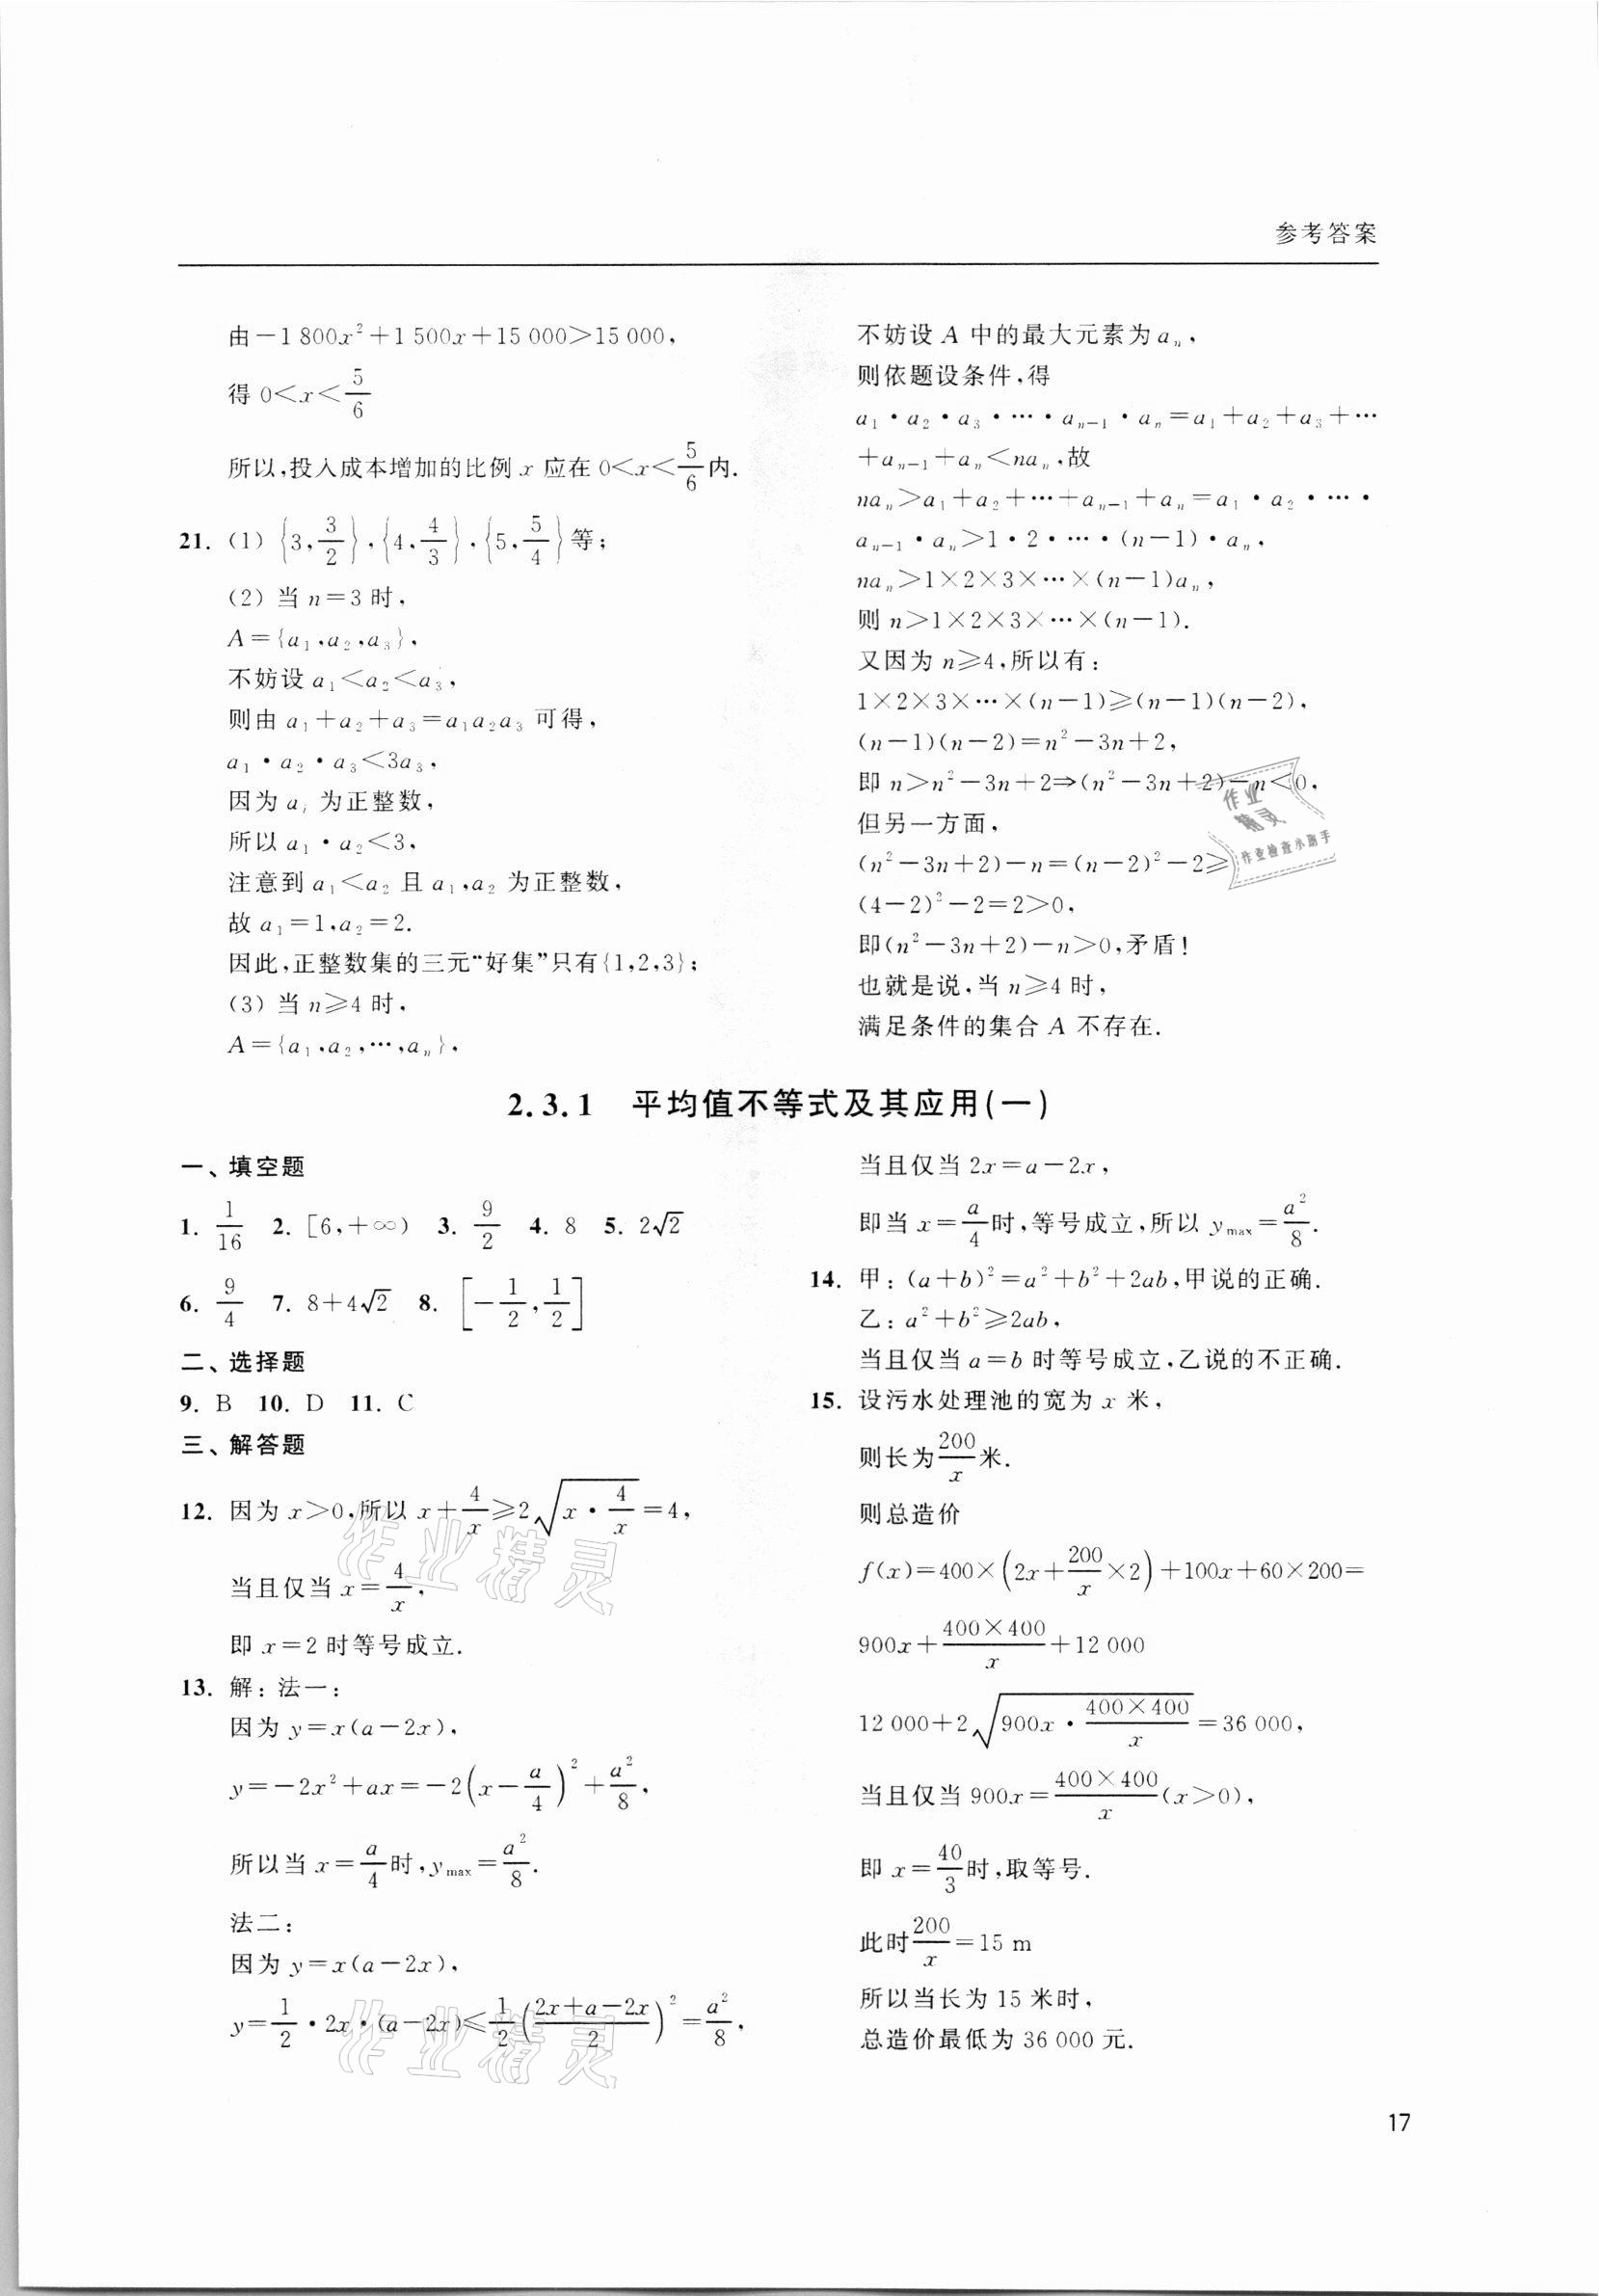 参考答案
由－1 800x²＋1 500x＋15 000＞15 000，
得 0＜x＜5/6
所以，投入成本增加的比例 x 应在 0＜x＜5/6内．
21. (1) {3，3/2}，{4，4/3}，{5，5/4}等；
(2) 当 n＝3 时，
A＝{a₁，a₂，a₃}，
不妨设 a₁＜a₂＜a₃，
则由 a₁＋a₂＋a₃＝a₁a₂a₃ 可得，
a₁・a₂・a₃＜3a₃，
因为 aᵢ 为正整数，
所以 a₁・a₂＜3，
注意到 a₁＜a₂ 且 a₁，a₂ 为正整数，
故 a₁＝1，a₂＝2．
因此，正整数集的三元“好集”只有{1，2，3}；
(3) 当 n≥4 时，
A＝{a₁，a₂，…，aₙ}，
不妨设 A 中的最大元素为 aₙ，
则依题设条件，得
a₁・a₂・a₃・…・aₙ₋₁・aₙ＝a₁＋a₂＋a₃＋…
＋aₙ₋₁＋aₙ＜naₙ，故
naₙ＞a₁＋a₂＋…＋aₙ₋₁＋aₙ＝a₁・a₂・…・
aₙ₋₁・aₙ＞1・2・…・(n－1)・aₙ，
naₙ＞1×2×3×…×(n－1)aₙ，
则 n＞1×2×3×…×(n－1)．
又因为 n≥4，所以有：
1×2×3×…×(n－1)≥(n－1)(n－2)，
(n－1)(n－2)＝n²－3n＋2，
即 n＞n²－3n＋2⇒(n²－3n＋2)－n＜0，
但另一方面，
(n²－3n＋2)－n＝(n－2)²－2≥
(4－2)²－2＝2＞0，
即(n²－3n＋2)－n＞0，矛盾！
也就是说，当 n≥4 时，
满足条件的集合 A 不存在．
作业
精灵
作业检查小助手
2.3.1 平均值不等式及其应用(一)
一、填空题
1. 1/16 2. [6，＋∞) 3. 9/2 4. 8 5. 2√2
6. 9/4 7. 8＋4√2 8. [－1/2，1/2]
二、选择题
9. B 10. D 11. C
三、解答题
12. 因为 x＞0，所以 x＋4/x≥2√(x・4/x)＝4，
当且仅当 x＝4/x，
即 x＝2 时等号成立．
13. 解：法一：
因为 y＝x(a－2x)，
y＝－2x²＋ax＝－2(x－a/4)²＋a²/8，
所以当 x＝a/4时，yₘₐₓ＝a²/8．
法二：
因为 y＝x(a－2x)，
y＝1/2・2x・(a－2x)≤1/2((2x＋a－2x)/2)²＝a²/8，
当且仅当 2x＝a－2x，
即当 x＝a/4时，等号成立，所以 yₘₐₓ＝a²/8．
14. 甲：(a＋b)²＝a²＋b²＋2ab，甲说的正确．
乙：a²＋b²≥2ab，
当且仅当 a＝b 时等号成立，乙说的不正确．
15. 设污水处理池的宽为 x 米，
则长为200/x米．
则总造价
f(x)＝400×(2x＋200/x×2)＋100x＋60×200＝
900x＋(400×400)/x＋12 000
12 000＋2√(900x・(400×400)/x)＝36 000，
当且仅当 900x＝(400×400)/x(x＞0)，
即 x＝40/3时，取等号．
此时200/x＝15 m
所以当长为 15 米时，
总造价最低为 36 000 元．
作业精灵
作业精灵
17